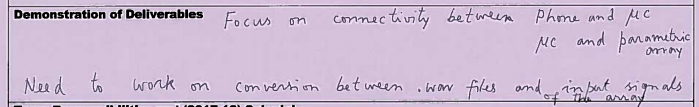 Demonstration of Deliverables Focus on connectivity between Phone and μC
μC and parametric
array
Need to work on conversion between .wav files and input signals
of the array